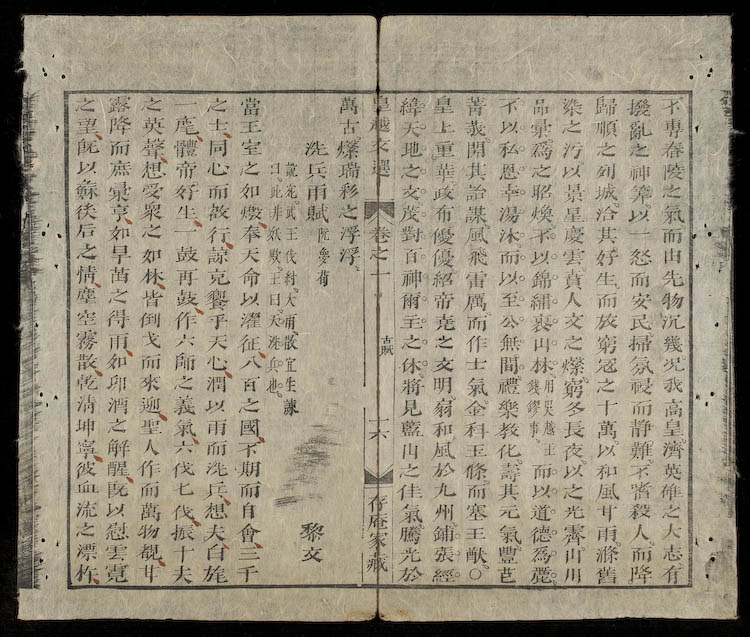 不專春陵之氣而由先物沉幾况我高皇濟英雄之大志有
撥亂之神筭以一怒而安民掃氛祲而静難不嗜殺人而降
歸順之列城洽其好生而放窮冦之十萬以和風甘雨滌舊
染之污以景星慶雲賁人文之燦窮冬長夜以之光霽山川
品彙爲之昭煥不以錦絹裹山林用吳越王錢鏐事而以道德爲麗
不以私恩幸湯沐而以至公無間禮樂教化壽其元氣豐芑
菁莪開其詒謀風飛雷厲而作士氣金科玉條而塞王猷○
皇上重華政布優優紹帝堯之文明翕和風於九州鋪張經
緯天地之文茂對百神爾主之休將見藍山之佳氣騰光於
皇越文選 卷之一 古賦 十六 存庵家藏
萬古燦瑞彩之浮浮
洗兵雨賦 阮夢荀
說苑武王伐紂大雨散宜生諫
曰此非妖歟王曰天洗兵也
黎文
當王室之如燬奉天命以濯征八百之國不期而自會三千
之士同心而敵行諒克饗乎天心澗以雨而洗兵想夫白旄
一麾體帝好生一鼓再鼓作六師之義氣六伐七伐振十夫
之英聲想受衆之如林皆倒戈而來迎聖人作而萬物覩甘
露降而庶彙亨如旱苗之得雨如卯酒之解酲既以慰雲霓
之望既以蘇徯后之情塵空霧散乾清坤寧彼血流之漂杵